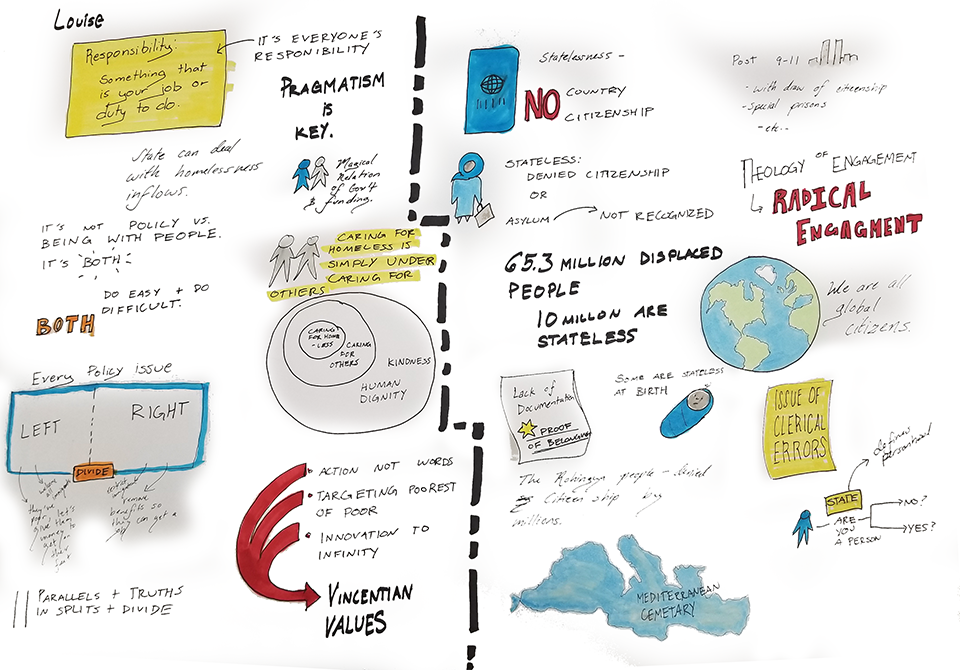 Louise
Responsibility:
Something that
is your job or
duty to do.
IT'S EVERYONE'S
RESPONIBILITY
PRAGMATISM
IS
KEY.
State can deal
with homelessness
inflows.
Magical
Relation
of Gov't
& funding.
IT'S NOT POLICY VS.
BEING WITH PEOPLE.
IT'S BOTH
DO EASY + DO
DIFFICULT.
BOTH
CARING FOR
HOMELESS IS
SIMPLY UNDER
CARING FOR
OTHERS
CARING
FOR HOME
-LESS
CARING
FOR
OTHERS
KINDNESS
HUMAN
DIGNITY
Every Policy issue
LEFT
RIGHT
DIVIDE
they're
poor, let's
give them
money to
get on
their
feet
remove
benefits so
they can get a
job
ACTION NOT WORDS
TARGETING POOREST
OF POOR
INNOVATION TO
INFINITY
VINCENTIAN
VALUES
PARALLELS + TRUTHS
IN SPLITS + DIVIDE
Statelessness -
NO COUNTRY
CITIZENSHIP
Post 9-11
- with draw of citizenship
- special prisons
- etc..
STATELESS:
DENIED CITIZENSHIP
OR
ASYLUM NOT RECOGNIZED
THEOLOGY OF ENGAGEMENT
RADICAL
ENGAGMENT
65.3 MILLION DISPLACED
PEOPLE
10 MILLON ARE
STATELESS
We are all
global
citizens.
Lack of
Documentation
PROOF
OF BELONGING
SOME ARE STATELESS
AT BIRTH
ISSUE OF
CLERICAL
ERRORS
The Rohingya people - denied
Citizenship by
millions.
defines
personhood
STATE
ARE
YOU
A PERSON
NO?
YES?
MEDITERRANEAN
CEMETARY